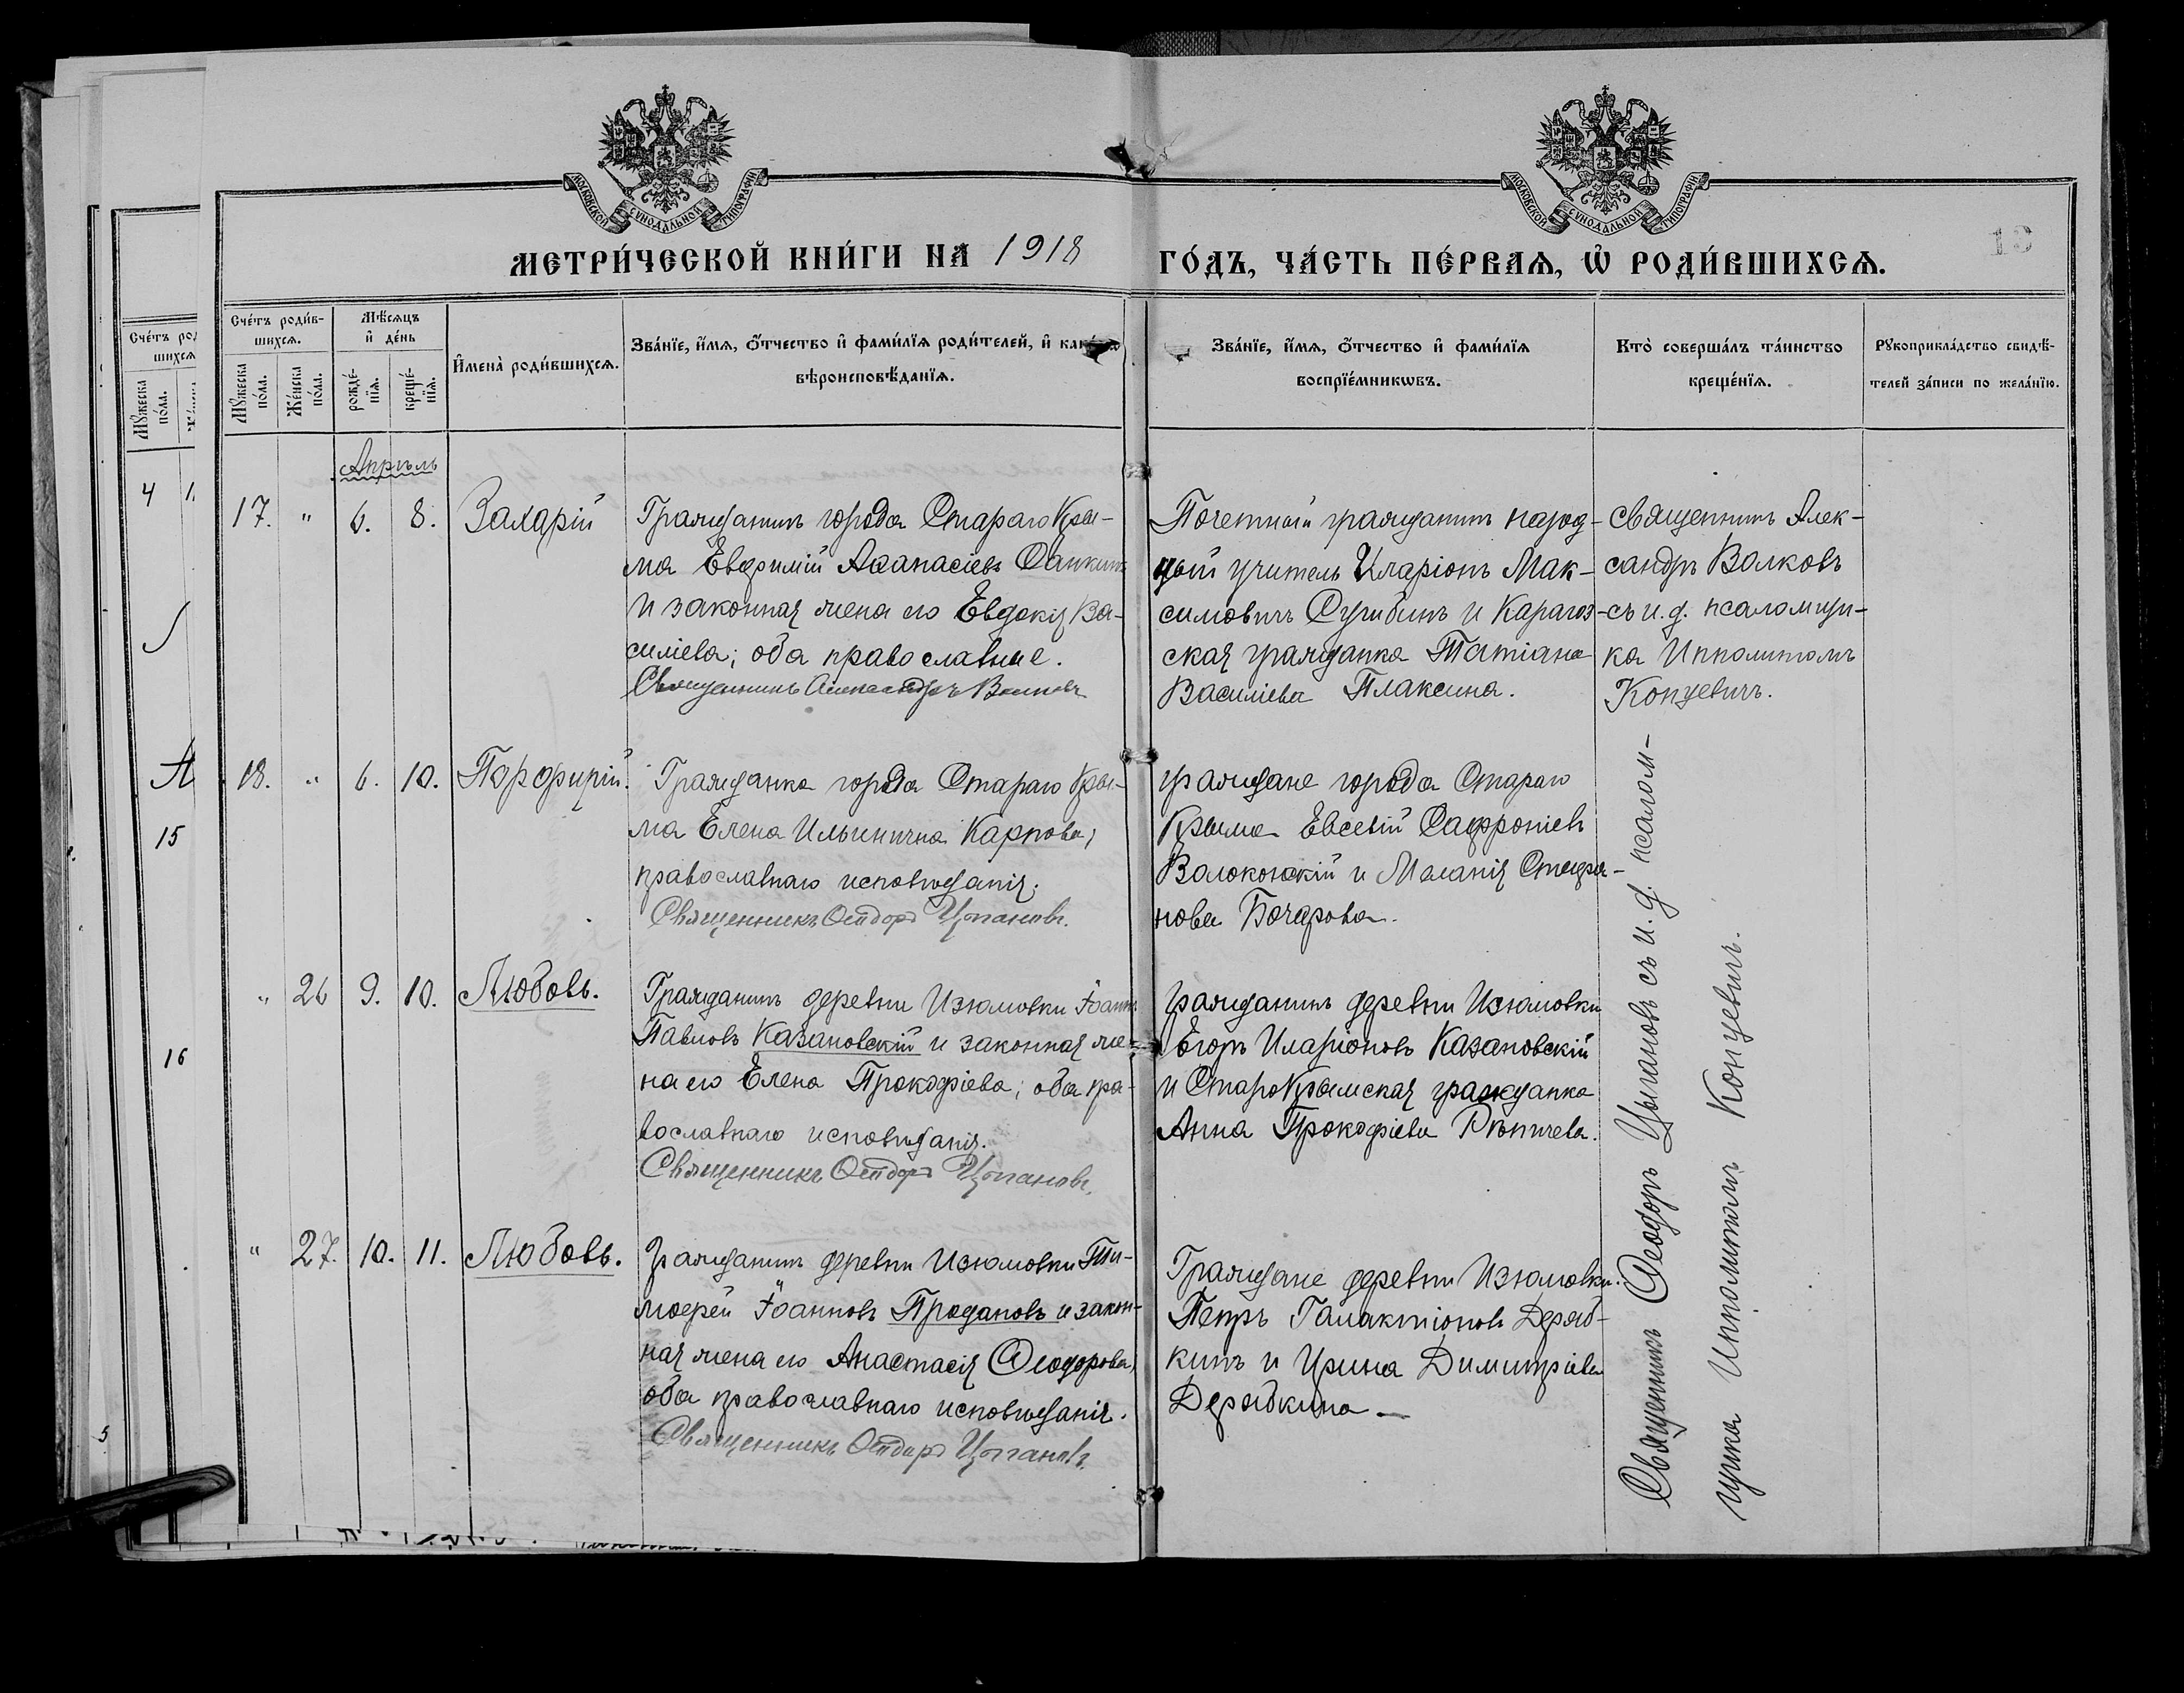 МОСКОВСКОЙ СУНОДАЛЬНОЙ ТИПОГРАФИИ
МОСКОВСКОЙ СУНОДАЛЬНОЙ ТИПОГРАФИИ
МЕТРИ́ЧЕСКОЙ КНИ́ГИ НА 1918 ГО́ДЪ, ЧА́СТЬ ПЕ́РВАЯ, Ѡ РОДИ́ВШИХСЯ.
Сче́тъ роди́в-
шихся.
Мѣ́сяцъ
и҆ де́нь
Му́жеска
по́ла.
Же́нска
по́ла.
рожде́-
нїя.
креще́-
нїя.
И҆мена̀ роди́вшихся.
Зва́нїе, и҆́мя, о҆́тчество и҆ фами́лїя роди́телей, и҆
вѣроисповѣ́данїя.
Зва́нїе, и҆́мя, о҆́тчество и҆ фами́лїя
воспрїе́мникѡвъ.
Кто̀ соверша́лъ та́инство
креще́нїя.
Рукоприкла́дство свидѣ́-
телей за́писи по жела́нїю.
Апрѣль
17. " 6. 8. Захарій
Гражданинъ города Стараго Кры-
ма Евфимій Аѳанасіевъ
и законная жена его Евдокія Ва-
силіева; оба православные.
Священникъ Александръ Волковъ
Почетный гражданинъ народ-
ный учитель Иларіонъ Мак-
симовичъ и Карагоз-
ская гражданка Татіана
Василіева Плаксина.
Священникъ Алек-
сандръ Волковъ
съ и. д. псаломщи-
ка Ипполитомъ
Концевичъ.
18. " 6. 10. Порфирій.
Гражданка города Стараго Кры-
ма Елена Ильинична Карпова,
православнаго исповѣданія.
Священникъ Ѳеодоръ Цыгановъ.
граждане города Стараго
Крыма Евсевій Сафроніевъ
Волоконскій и Меланія Стефа-
нова Бочарова.
" 26 9. 10. Любовь.
Гражданинъ деревни Изюмовки Іоаннъ
Павловъ Казановскій и законная же-
на его Елена Прокофіева; оба пра-
вославнаго исповѣданія.
Священникъ Ѳеодоръ Цыгановъ.
Гражданинъ деревни Изюмовки
Егоръ Иларіоновъ Казановскій
и СтароКрымская гражданка
Анна Прокофіева Рѣпичева.
" 27. 10. 11. Любовь.
Гражданинъ деревни Изюмовки Ти-
мофей Іоанновъ Продановъ и закон-
ная жена его Анастасія Ѳеодорова,
оба православнаго исповѣданія.
Священникъ Ѳеодоръ Цыгановъ.
Граждане деревни Изюмовки.
Петръ Галактіоновъ Деряб-
кинъ и Ирина Димитріева
Дерябкина —
Священникъ Ѳеодоръ Цыгановъ съ и. д. псалом-
щика Ипполитомъ Концевичъ.
Сче́тъ ро
шихся
Му́жеска
по́ла.
4
15
16
5